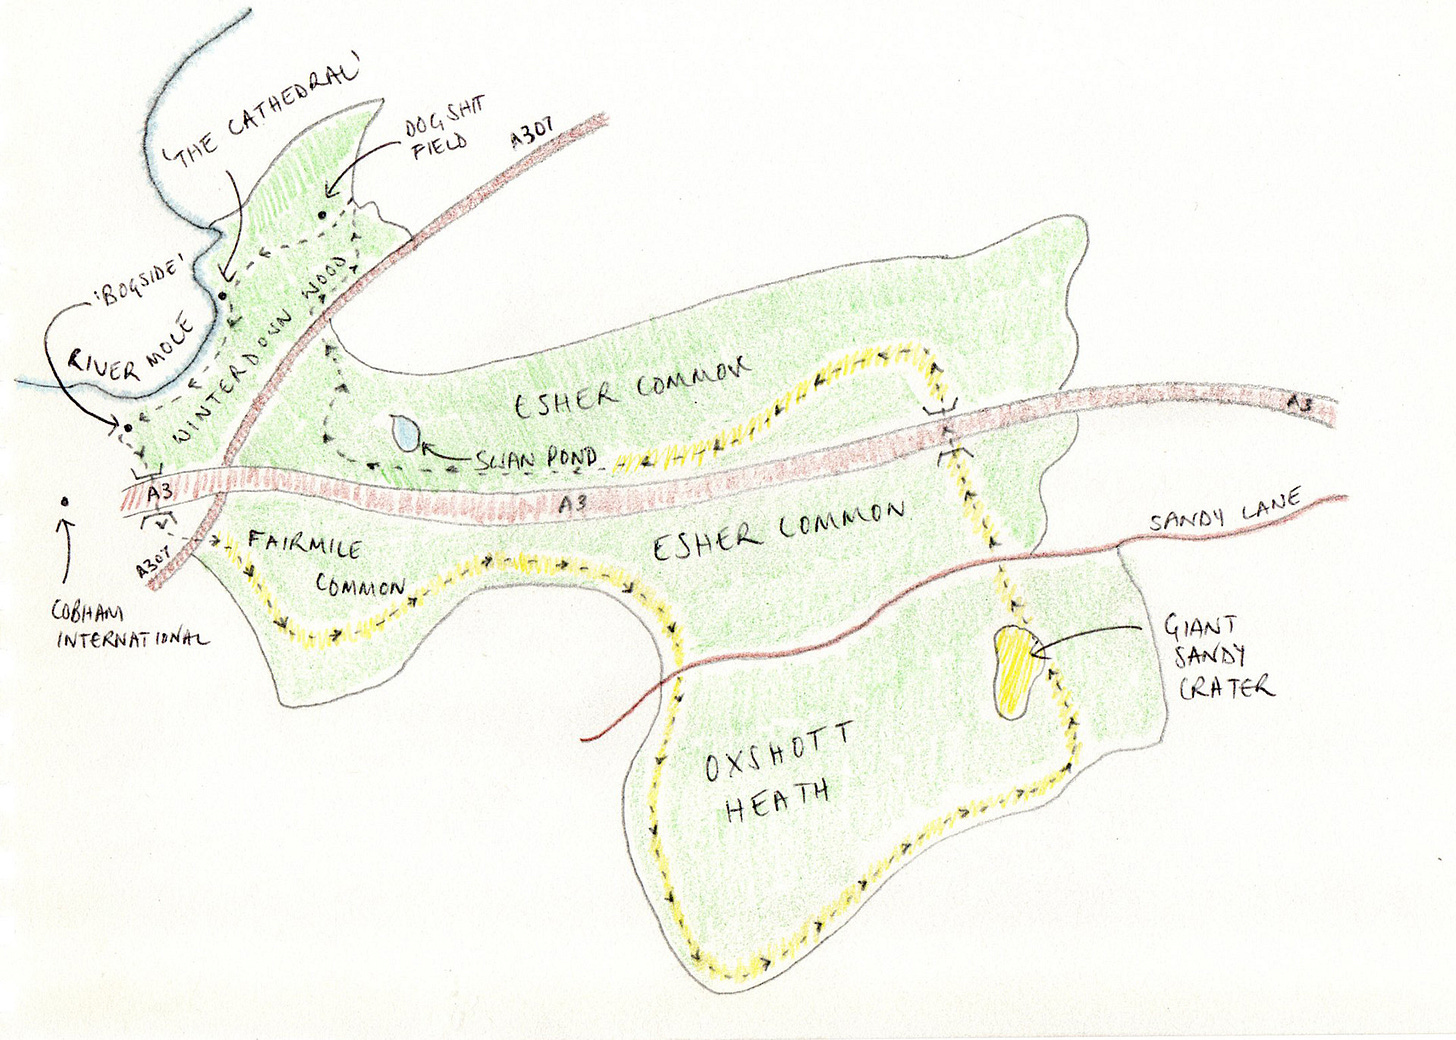 'THE CATHEDRAL'
DOGSHIT
FIELD
A307
'BOGSIDE'
RIVER MOLE
WINTERDOWN WOOD
ESHER COMMON
SWAN POND
A3
A3
A3
ESHER COMMON
SANDY LANE
FAIRMILE
COMMON
A307
COBHAM
INTERNATIONAL
GIANT
SANDY
CRATER
OXSHOTT
HEATH